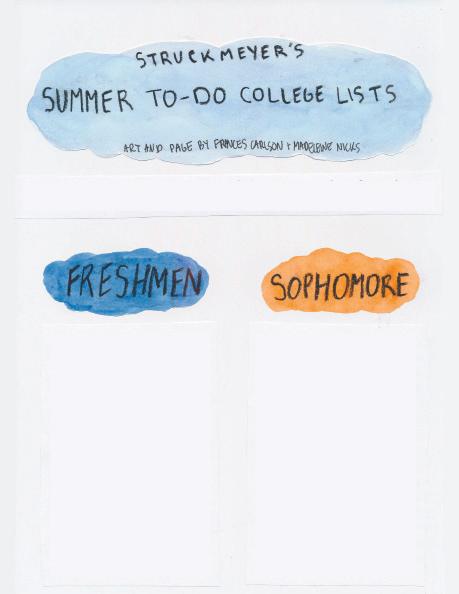 STRUCKMEYER'S
SUMMER TO-DO COLLEGE LISTS
ART AND PAGE BY FRANCES CARLSON + MADELEINE NICKS
FRESHMEN
SOPHOMORE